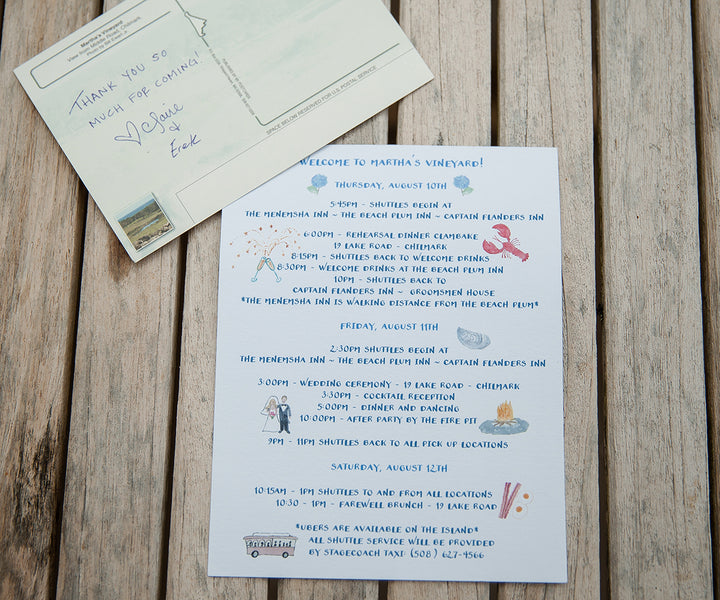 Martha's Vineyard
View from Middle Road, Chilmark
THANK YOU SO
MUCH FOR COMING!
Claire
&
Erek
SPACE BELOW RESERVED FOR U.S. POSTAL SERVICE
WELCOME TO MARTHA'S VINEYARD!
THURSDAY, AUGUST 10TH
5:45PM - SHUTTLES BEGIN AT
THE MENEMSHA INN ~ THE BEACH PLUM INN ~ CAPTAIN FLANDERS INN
6:00PM - REHEARSAL DINNER CLAMBAKE
19 LAKE ROAD - CHILMARK
8:15PM - SHUTTLES BACK TO WELCOME DRINKS
8:30PM - WELCOME DRINKS AT THE BEACH PLUM INN
10PM - SHUTTLES BACK TO
CAPTAIN FLANDERS INN ~ GROOMSMEN HOUSE
*THE MENEMSHA INN IS WALKING DISTANCE FROM THE BEACH PLUM*
FRIDAY, AUGUST 11TH
2:30PM SHUTTLES BEGIN AT
THE MENEMSHA INN ~ THE BEACH PLUM INN ~ CAPTAIN FLANDERS INN
3:00PM - WEDDING CEREMONY - 19 LAKE ROAD - CHILMARK
3:30PM - COCKTAIL RECEPTION
5:00PM - DINNER AND DANCING
10:00PM - AFTER PARTY BY THE FIRE PIT
9PM - 11PM SHUTTLES BACK TO ALL PICK UP LOCATIONS
SATURDAY, AUGUST 12TH
10:15AM - 1PM SHUTTLES TO AND FROM ALL LOCATIONS
10:30 - 1PM - FAREWELL BRUNCH - 19 LAKE ROAD
*UBERS ARE AVAILABLE ON THE ISLAND*
ALL SHUTTLE SERVICE WILL BE PROVIDED
BY STAGECOACH TAXI: (508) 627-4566